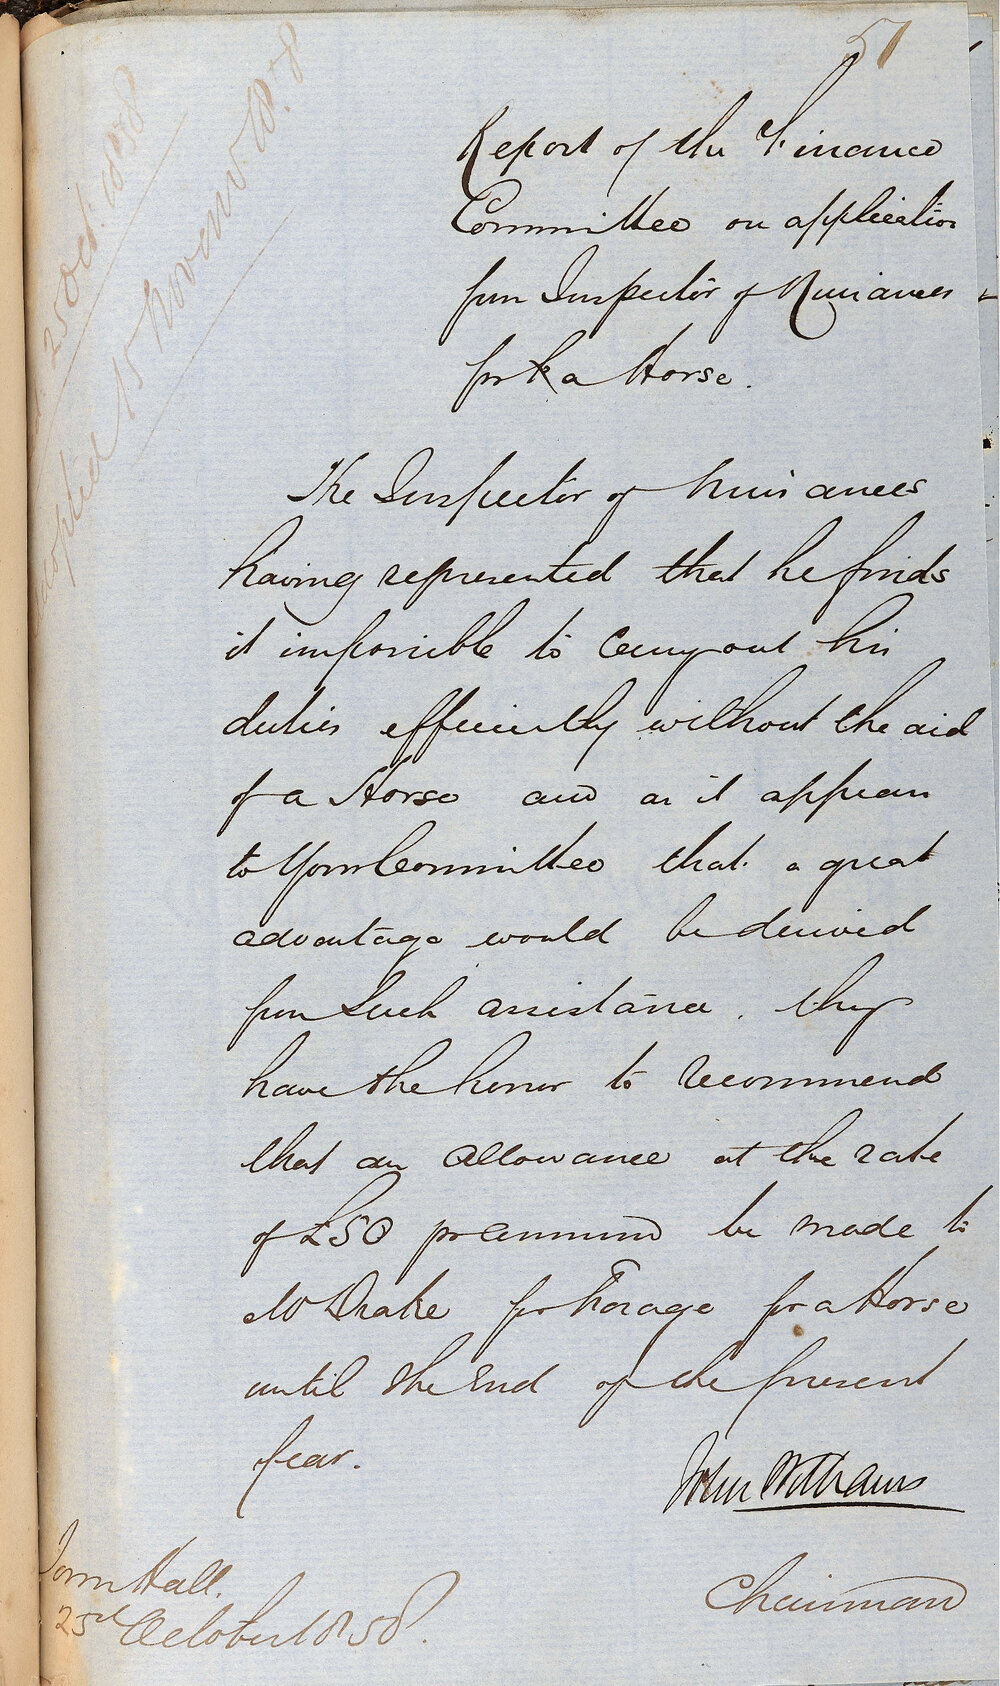 51
Report of the Finance
Committee on application
from Inspector of Nuisances
for a Horse.
25 Oct. 1858
adopted 15 Novem. 1858
The Inspector of Nuisances
having represented that he finds
it impossible to carry out his
duties efficiently without the aid
of a Horse and as it appears
to Your Committee that a great
advantage would be derived
from such assistance, they
have the honor to recommend
that an allowance at the rate
of £50 pr annum be made to
Mr Drake for Forage for a Horse
until the End of the present
year.
John Williams
Chairman
Town Hall.
23rd October 1858.